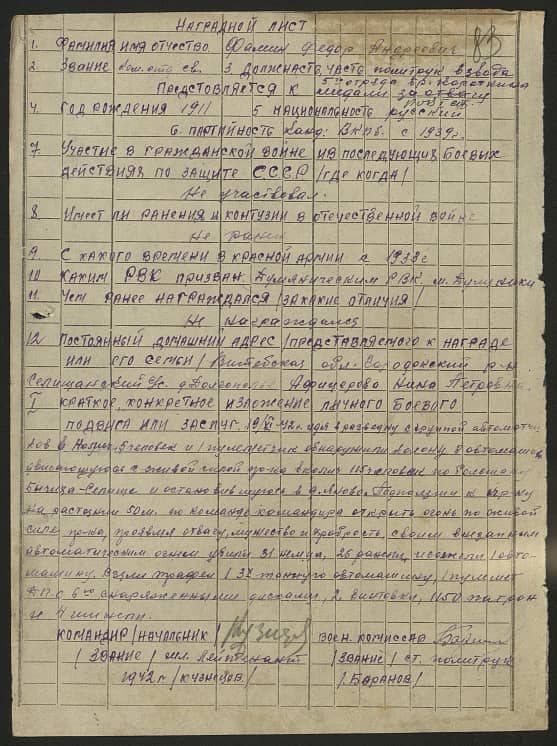 НАГРАДНОЙ ЛИСТ
83
1. ФАМИЛИЯ ИМЯ ОТЧЕСТВО. Фомин Федор Андреевич
2. ЗВАНИЕ св. 3. ДОЛЖНОСТЬ, ЧАСТЬ ПОЛИТРУК ВЗВОДА
5го отряда бр. Короткина
ПРЕДСТОВЛЯЕТСЯ К медали за отвагу
4. ГОД РОЖДЕНИЯ 1911 5 НАЦИОНАЛНОСТЬ русский
6. ПАРТИЙНОСТЬ Канд: ВКПб. с 1939г.
7. УЧАСТИЕ В ГРАЖДАНСКОЙ ВОЙНЕ И В ПОСЛЕДУЮЩИХ БОЕВЫХ
ДЕЙСТВИЯХ ПО ЗАЩИТЕ СССР /ГДЕ КОГДА/
Не участвовал.
8. ИМЕЕТ ЛИ РАНЕНИЯ И КОНТУЗИИ В ОТЕЧЕСТВЕННОЙ ВОЙНЕ
Не ранен
9. С КАКОГО ВРЕМЕНИ В КРАСНОЙ АРМИИ с 1933 г
10. КАКИМ РВК ПРИЗВАН. Думяническим РВК м. Думиники
11. ЧЕМ РАНЕЕ НАГРАЖДАЛСЯ /ЗА КАКИЕ ОТЛИЧИЯ/
Не награждался
12 ПОСТОЯННЫЙ ДОМАШНИЙ АДРЕС /ПРЕДСТАВЛЯЕМОГО К НАГРАДЕ
ИЛИ ЕГО СЕМЬИ/ Витебская обл. р-н
Селищанский д. Нина Петровна.
I КРАТКОЕ, КОНКРЕТНОЕ ИЗЛОЖЕНИЕ ЛИЧНОГО БОЕВОГО
ПОДВИГА ИЛИ ЗАСЛУГ. 42г. идя в разведку с группой автоматчи-
ков в 5 человек и 1 пулеметчик обнаружили колону 8 автомашин
двигающуюся с живой силой пр-ка в колич. 115 человек по
Бычиха-Селище и остановившуюся в д. Подползли к пр-ку
на растояни 50м. по команде командира открыть огонь по живой
силе пр-ка, проявляя отвагу, мужество и храбрость, своим внезапным
автоматическим огнем убили 31 немца, 26 ранен, и сожгли 1 авто-
машину. Взяли трафеи 1 3х тонную автомашину, 1 пулемет
ДП с 6ю снаряженными дисками, 2 винтовки, 1150 патрон
и 4
КОМАНДИР /НАЧАЛЬНИК/ ВОЕН. КОМИССАР
/ЗВАНИЕ/ мл. лейтенант /ЗВАНИЕ/ ст. политрук
1942г /КУЗНЕЦОВ/ /БАРАНОВ/